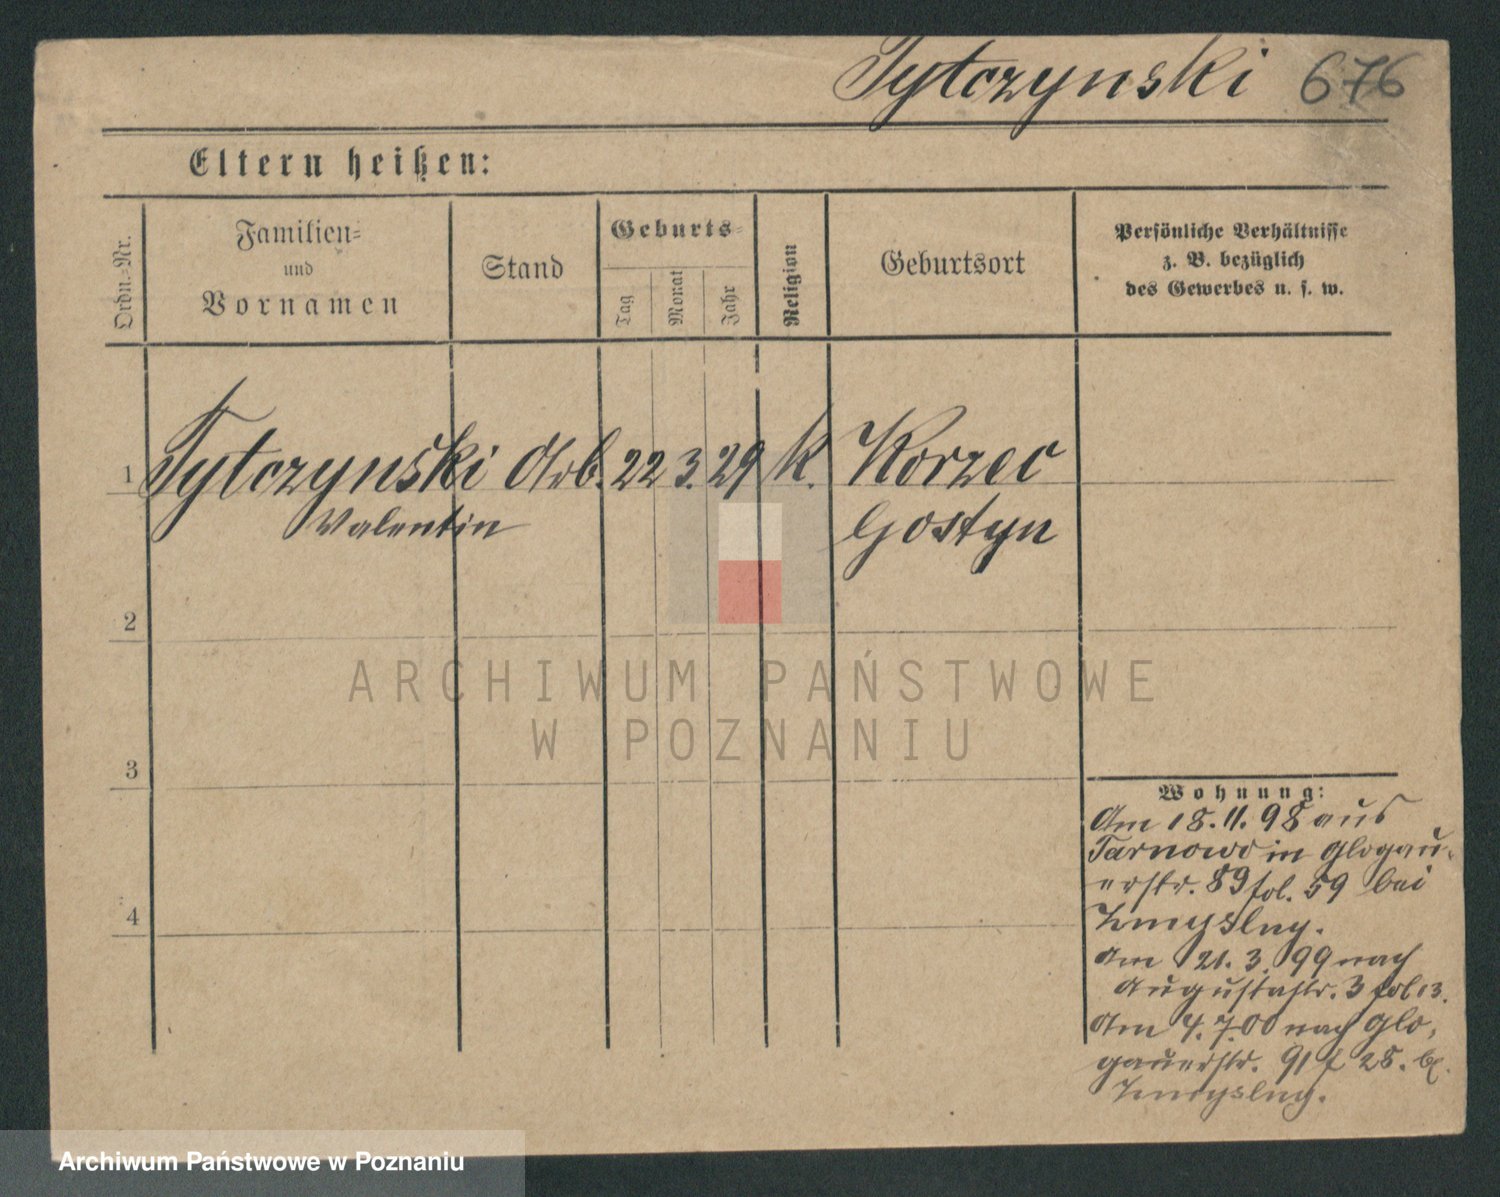 Tytczynski 676
Eltern heißen:
Ordn.-Nr.
Familien-
und
Vornamen
Stand
Geburts-
Tag
Monat
Jahr
Religion
Geburtsort
Persönliche Verhältnisse
z. B. bezüglich
des Gewerbes u. s. w.
1 Tytczynski Arb. 22 3. 29 k. Korzec
Valentin Gostyn
2
3
4
ARCHIWUM PAŃSTWOWE
W POZNANIU
Wohnung:
Am 18. 11. 98 aus
Tarnowo in Glogau-
erstr. 89 fol. 59 bei
Am 21. 3. 99 nach
Augustastr. 3 fol 13.
Am 4. 7. 00 nach Glo,
gauerstr. 91 f 28. b.
Archiwum Państwowe w Poznaniu